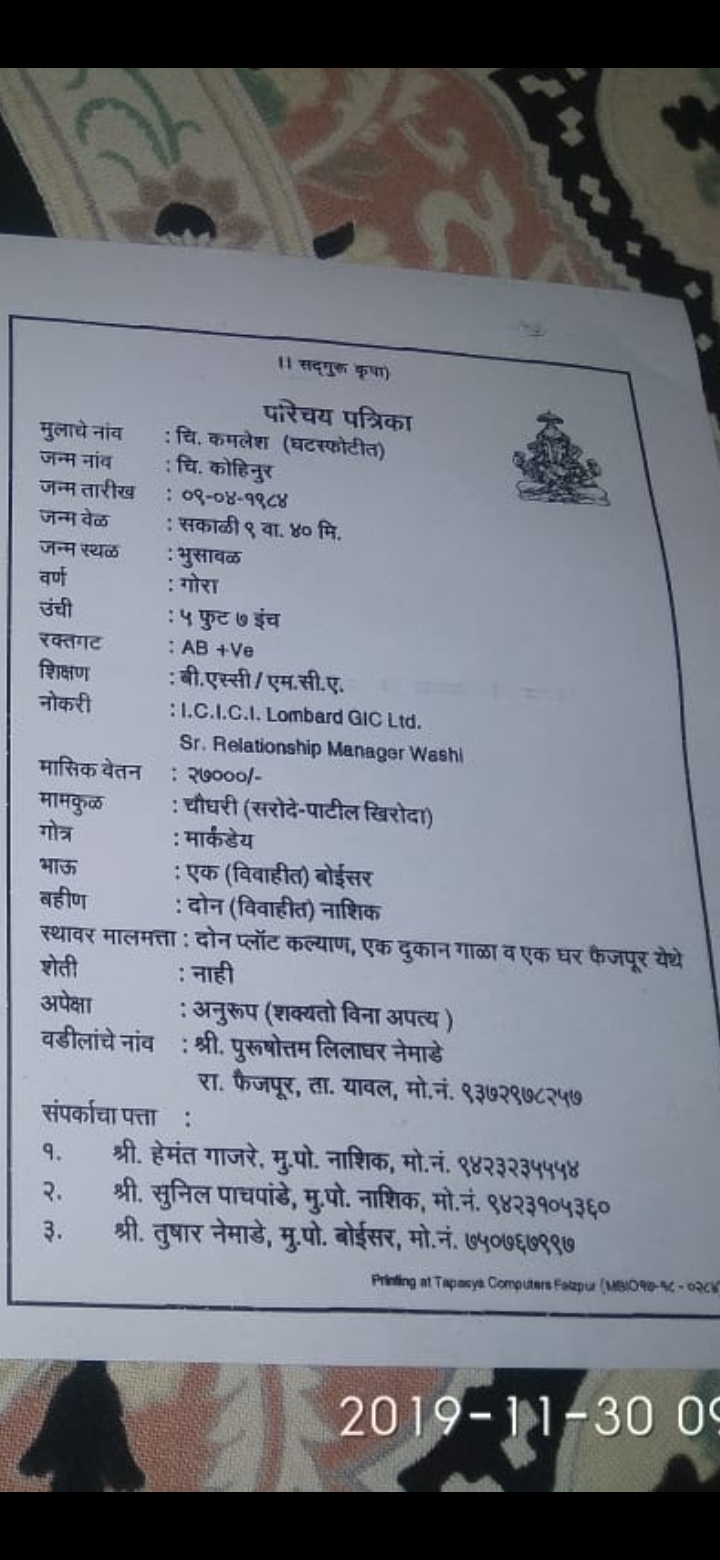 ।। सद्‌गुरु कृपा)
परिचय पत्रिका
मुलाचे नांव : चि. कमलेश (घटस्फोटीत)
जन्म नांव : चि. कोहिनुर
जन्म तारीख : ०९-०४-१९८४
जन्म वेळ : सकाळी ९ वा. ४० मि.
जन्म स्थळ : भुसावळ
वर्ण : गोरा
उंची : ५ फुट ७ इंच
रक्तगट : AB +Ve
शिक्षण : बी.एस्सी / एम.सी.ए.
नोकरी : I.C.I.C.I. Lombard GIC Ltd.
Sr. Relationship Manager Washi
मासिक वेतन : २७०००/-
मामकुळ : चौधरी (सरोदे-पाटील खिरोदा)
गोत्र : मार्कंडेय
भाऊ : एक (विवाहीत) बोईसर
बहीण : दोन (विवाहीत) नाशिक
स्थावर मालमत्ता : दोन प्लॉट कल्याण, एक दुकान गाळा व एक घर फैजपूर येथे
शेती : नाही
अपेक्षा : अनुरूप (शक्यतो विना अपत्य )
वडीलांचे नांव : श्री. पुरूषोत्तम लिलाधर नेमाडे
रा. फैजपूर, ता. यावल, मो.नं. ९३७२९७८२५७
संपर्काचा पत्ता :
१. श्री. हेमंत गाजरे, मु.पो. नाशिक, मो.नं. ९४२३२३५५५४
२. श्री. सुनिल पाचपांडे, मु.पो. नाशिक, मो.नं. ९४२३१०५३६०
३. श्री. तुषार नेमाडे, मु.पो. बोईसर, मो.नं. ७५०७६७९९७
Printing at Tapasya Computers Faizpur (MBIO१७-१८ - ०२८४
2019-11-30 09